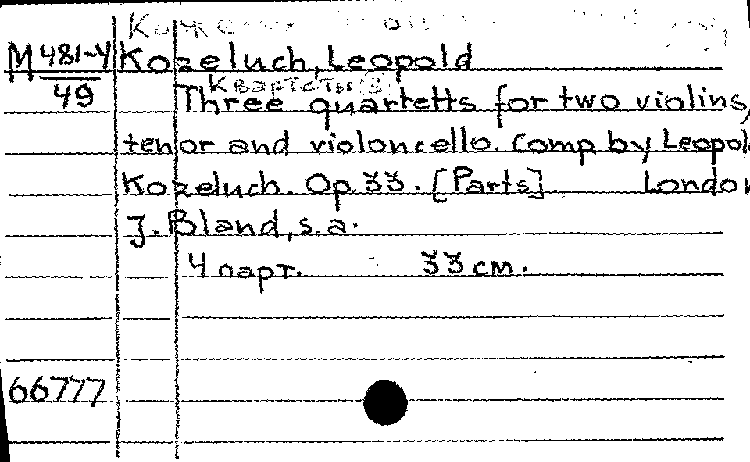 M 481-4 Kozeluch, Leopold
49 Квартеты (3)
Three quartetts for two violins,
tenor and violoncello. Comp by Leopol
Kozeluch. Op. 33. [Parts] London
J. Bland, s.a.
4 парт. 33 см.
66777